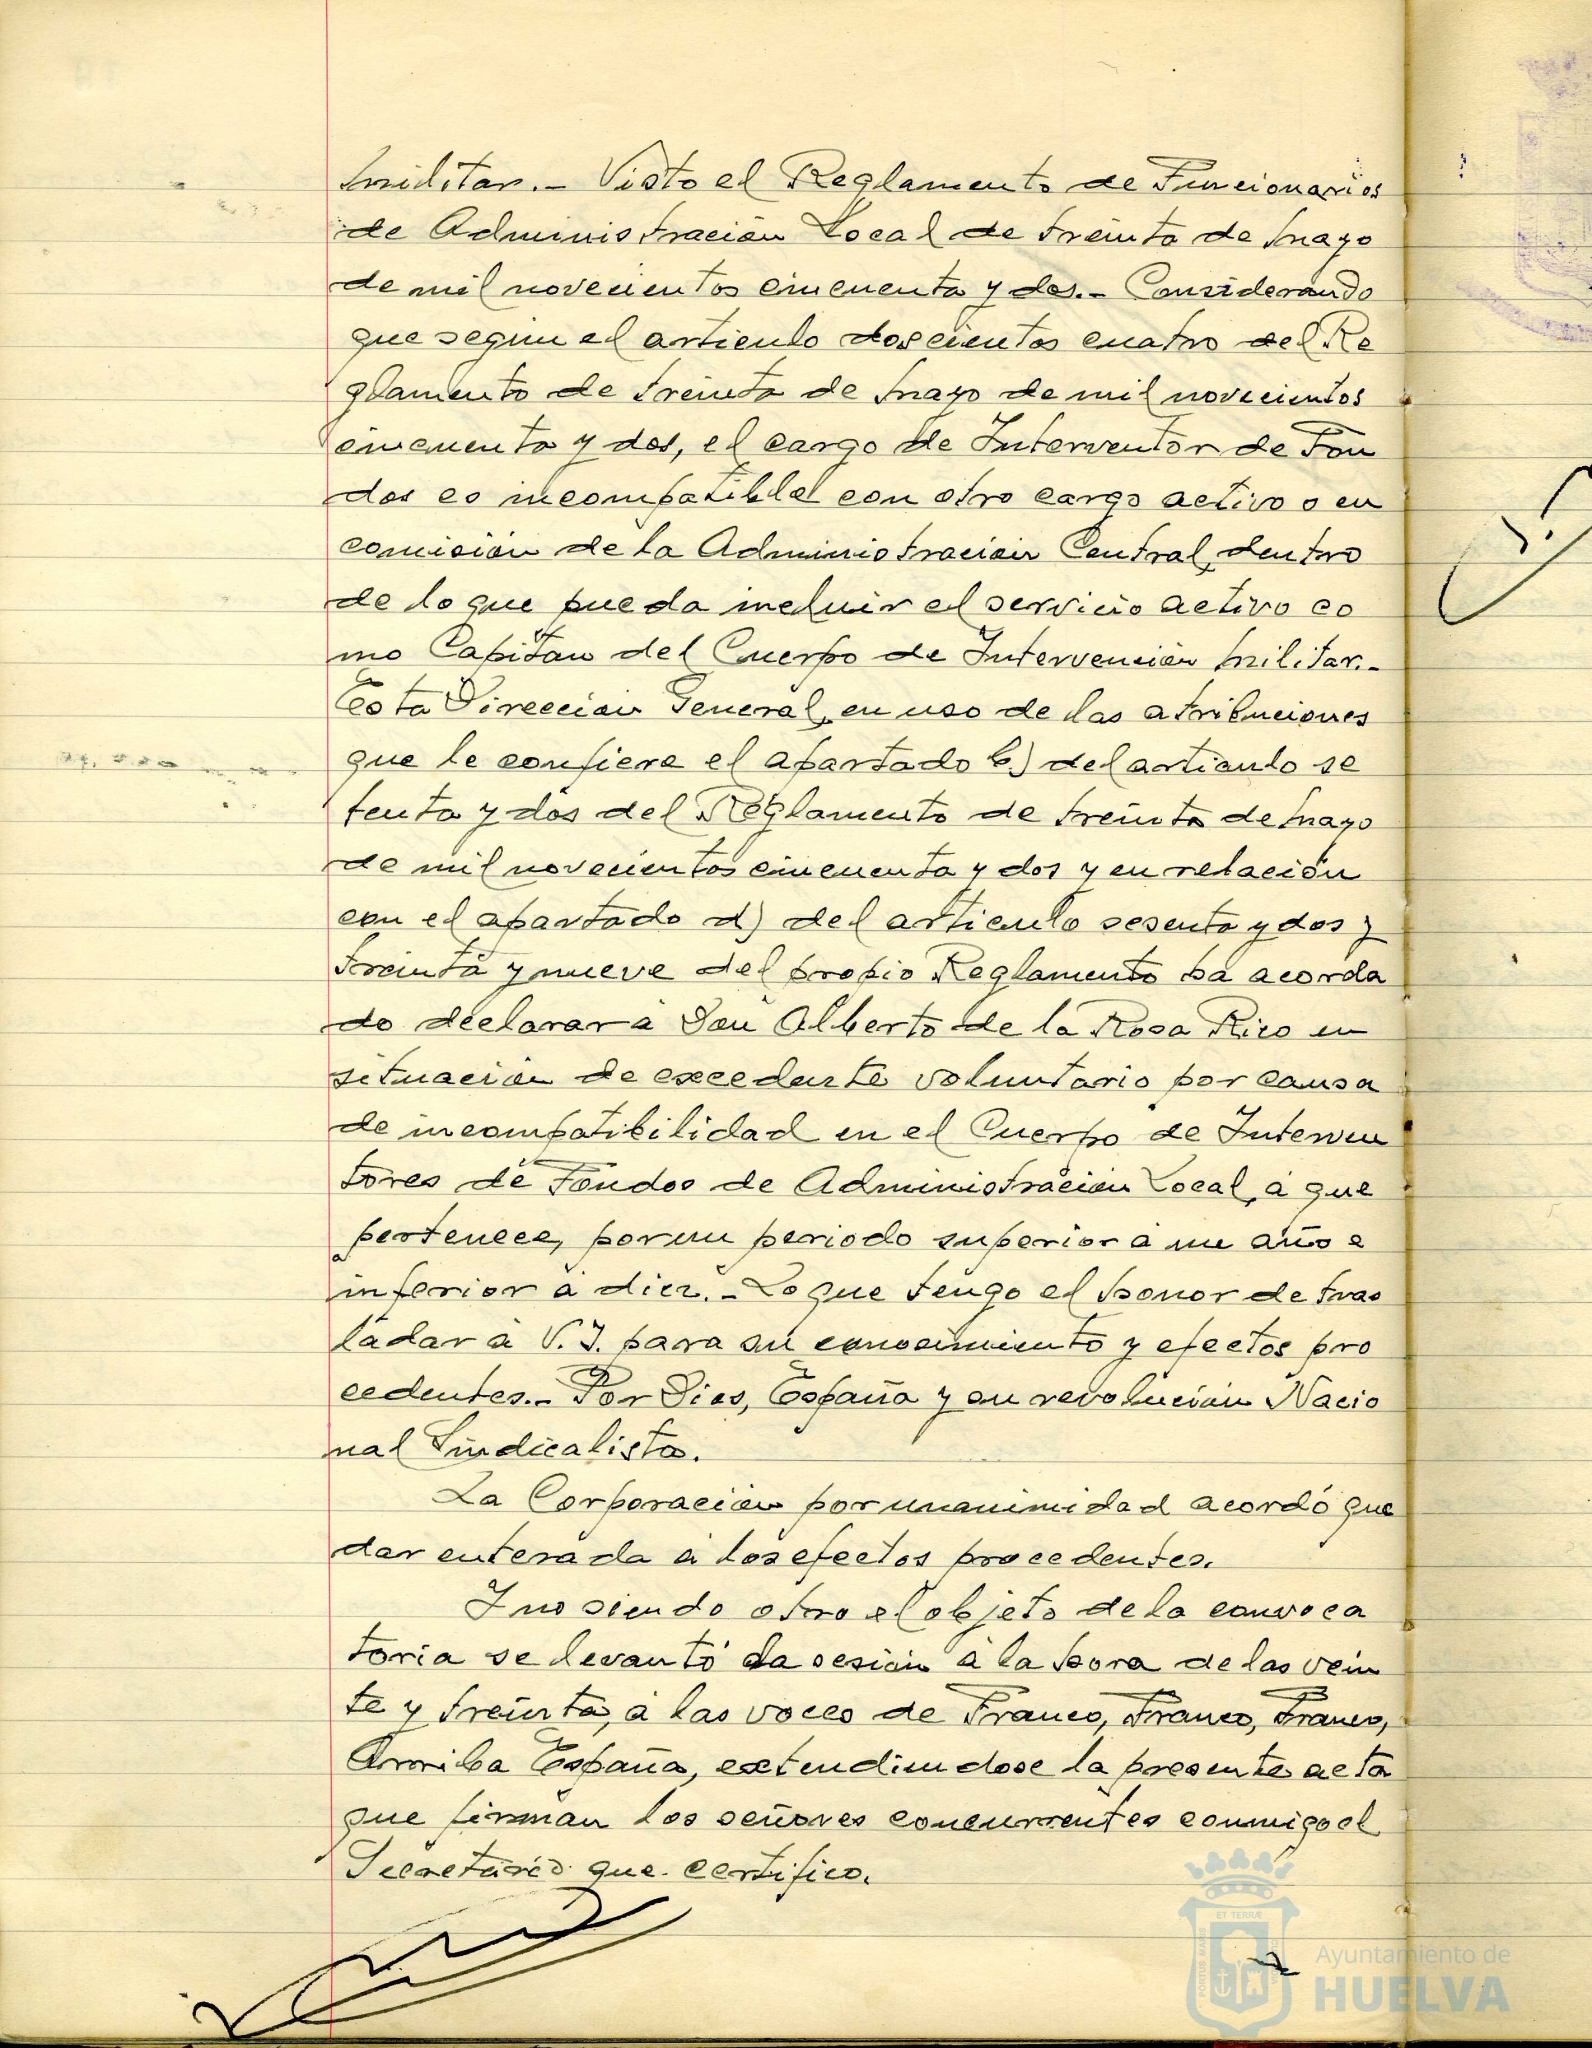 Militar.- Visto el Reglamento de Funcionarios
de Administración Local de treinta de Mayo
de mil novecientos cincuenta y dos.- Considerando
que según el artículo doscientos cuatro del Re
glamento de treinta de Mayo de mil novecientos
cincuenta y dos, el cargo de Interventor de Fon
dos es incompatible con otro cargo activo o en
comisión de la Administración Central, dentro
de lo que pueda incluir el servicio activo co
mo Capitán del Cuerpo de Intervención Militar.-
Esta Dirección General, en uso de las atribuciones
que le confiere el apartado b) del artículo se
tenta y dos del Reglamento de treinta de Mayo
de mil novecientos cincuenta y dos y en relación
con el apartado d) del artículo sesenta y dos y
treinta y nueve del propio Reglamento ha acorda
do declarar a Don Alberto de la Rosa Rico en
situación de excedente voluntario por causa
de incompatibilidad en el Cuerpo de Interven
tores de Fondos de Administración Local, a que
pertenece, por un periodo superior a un año e
inferior a diez.- Lo que tengo el honor de tras
ladar a V. I. para su conocimiento y efectos pro
cedentes.- Por Dios, España y su revolución Nacio
nal Sindicalista.
La Corporación por unanimidad acordó que
dar enterada a los efectos procedentes.
Y no siendo otro el objeto de la convoca
toria se levantó la sesión a la hora de las vein
te y treinta, a las voces de Franco, Franco, Franco,
Arriba España, extendiendose la presente acta
que firman los señores concurrentes conmigo el
Secretario que certifico.
ET TERRÆ
Ayuntamiento de
HUELVA